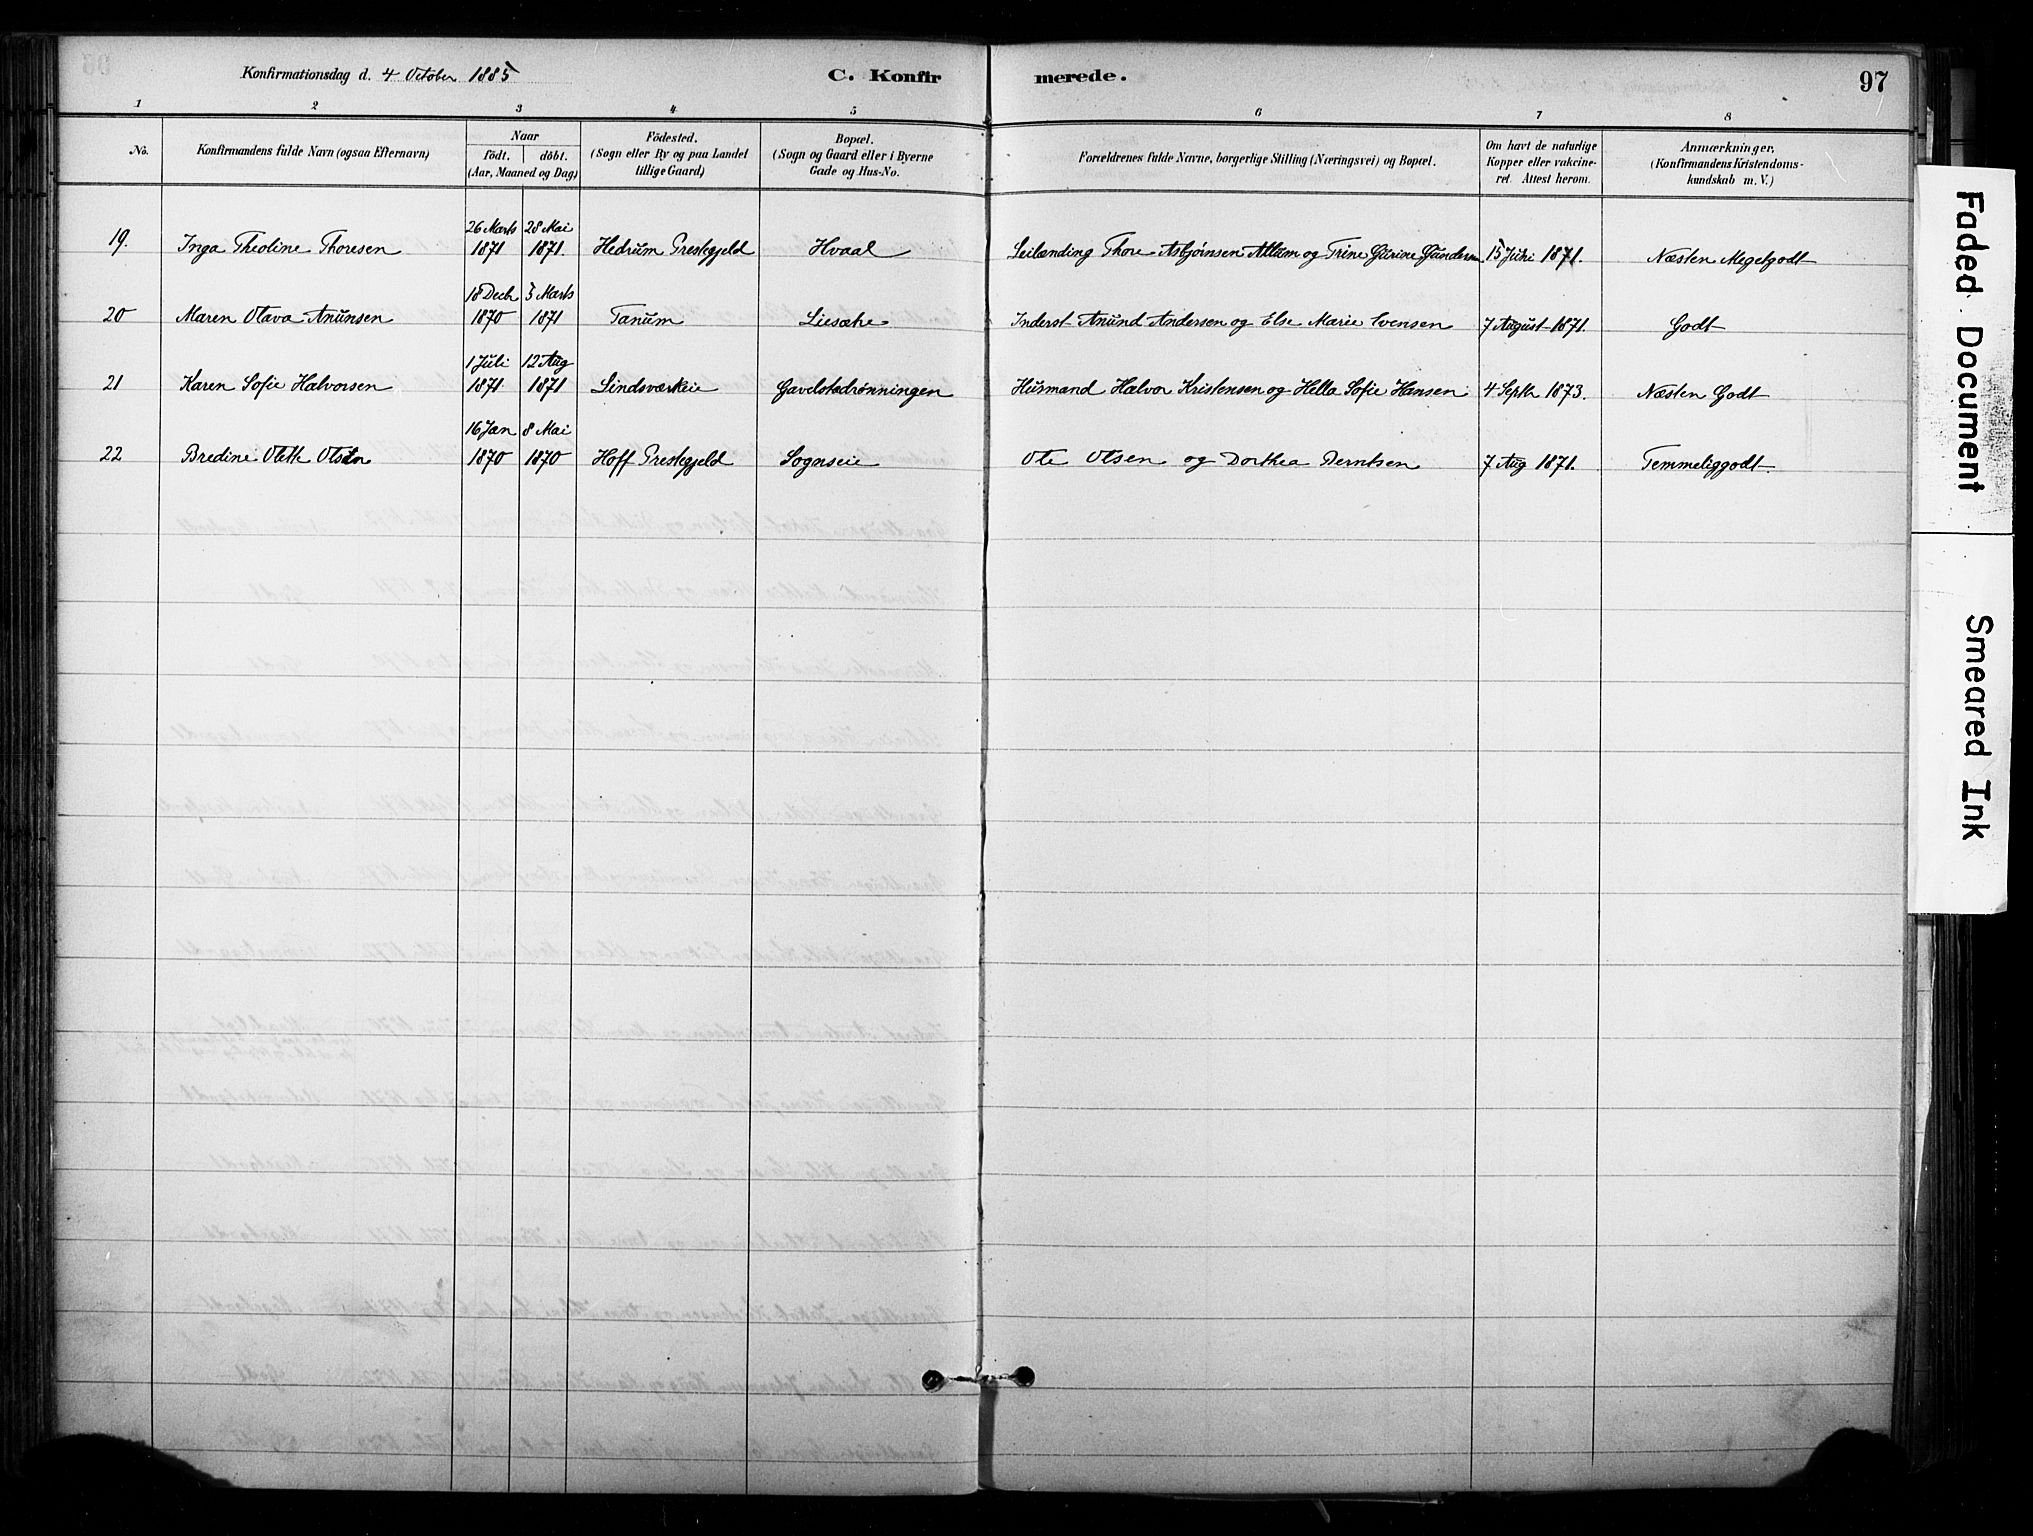 Konfirmationsdag d. 4 October 1885 C. Konfirmerede. 97
1 2 3 4 5 6 7 8
No. Konfirmandens fulde Navn (ogsaa Efternavn) Naar födt. döbt. (Aar, Maaned og Dag) Födested. (Sogn eller By og paa Landet tillige Gaard) Bopæl. (Sogn og Gaard eller i Byerne Gade og Hus-No. Forældrenes fulde Navne, borgerlige Stilling (Næringsvei) og Bopæl. Om havt de naturlige Kopper eller vakcineret. Attest herom. Anmærkninger, (Konfirmandens Kristendomskundskab m. V.)
19. Inga Theoline Thoresen 26 Marts 1871 28 Mai 1871. Hedrum Prestegjeld Hvaal Leilænding Thore Asbjørnsen Allum og Trine Gurine Gundersen 15 Juni 1871. Næsten Megetgodt
20 Maren Olava Anunsen 18 Decb 1870 5 Marts 1871 Tanum Liesæte Inderst Anund Andersen og Else Marie Evensen 7 August 1871. Godt
21 Karen Sofie Halvorsen 1 Juli 1871 12 Aug 1871 Lindsværkeie Gavelstadrønningen Husmand Halvor Kristensen og Hella Sofie Hansen 4 Septr 1873. Næsten Godt
22 Bredine Olette Olsen 16 Jan 1870 8 Mai 1870 Hoff Prestegjeld Sognseie Ole Olsen og Dorthea Berntsen 7 Aug 1871. Temmeliggodt.
Faded Document
Smeared Ink